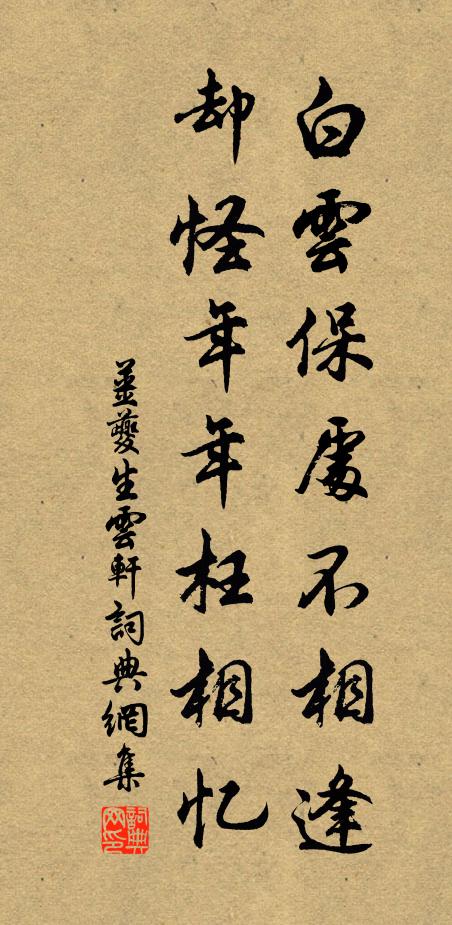 白雲保處不相逢
却怪年年枉相忆
薑夔生雲軒詞典網集
詞典網印